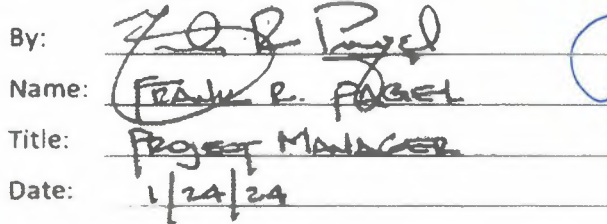 By: Frank R Pagel
Name: FRANK R. PAGEL
Title: PROJECT MANAGER
Date: 1/24/24